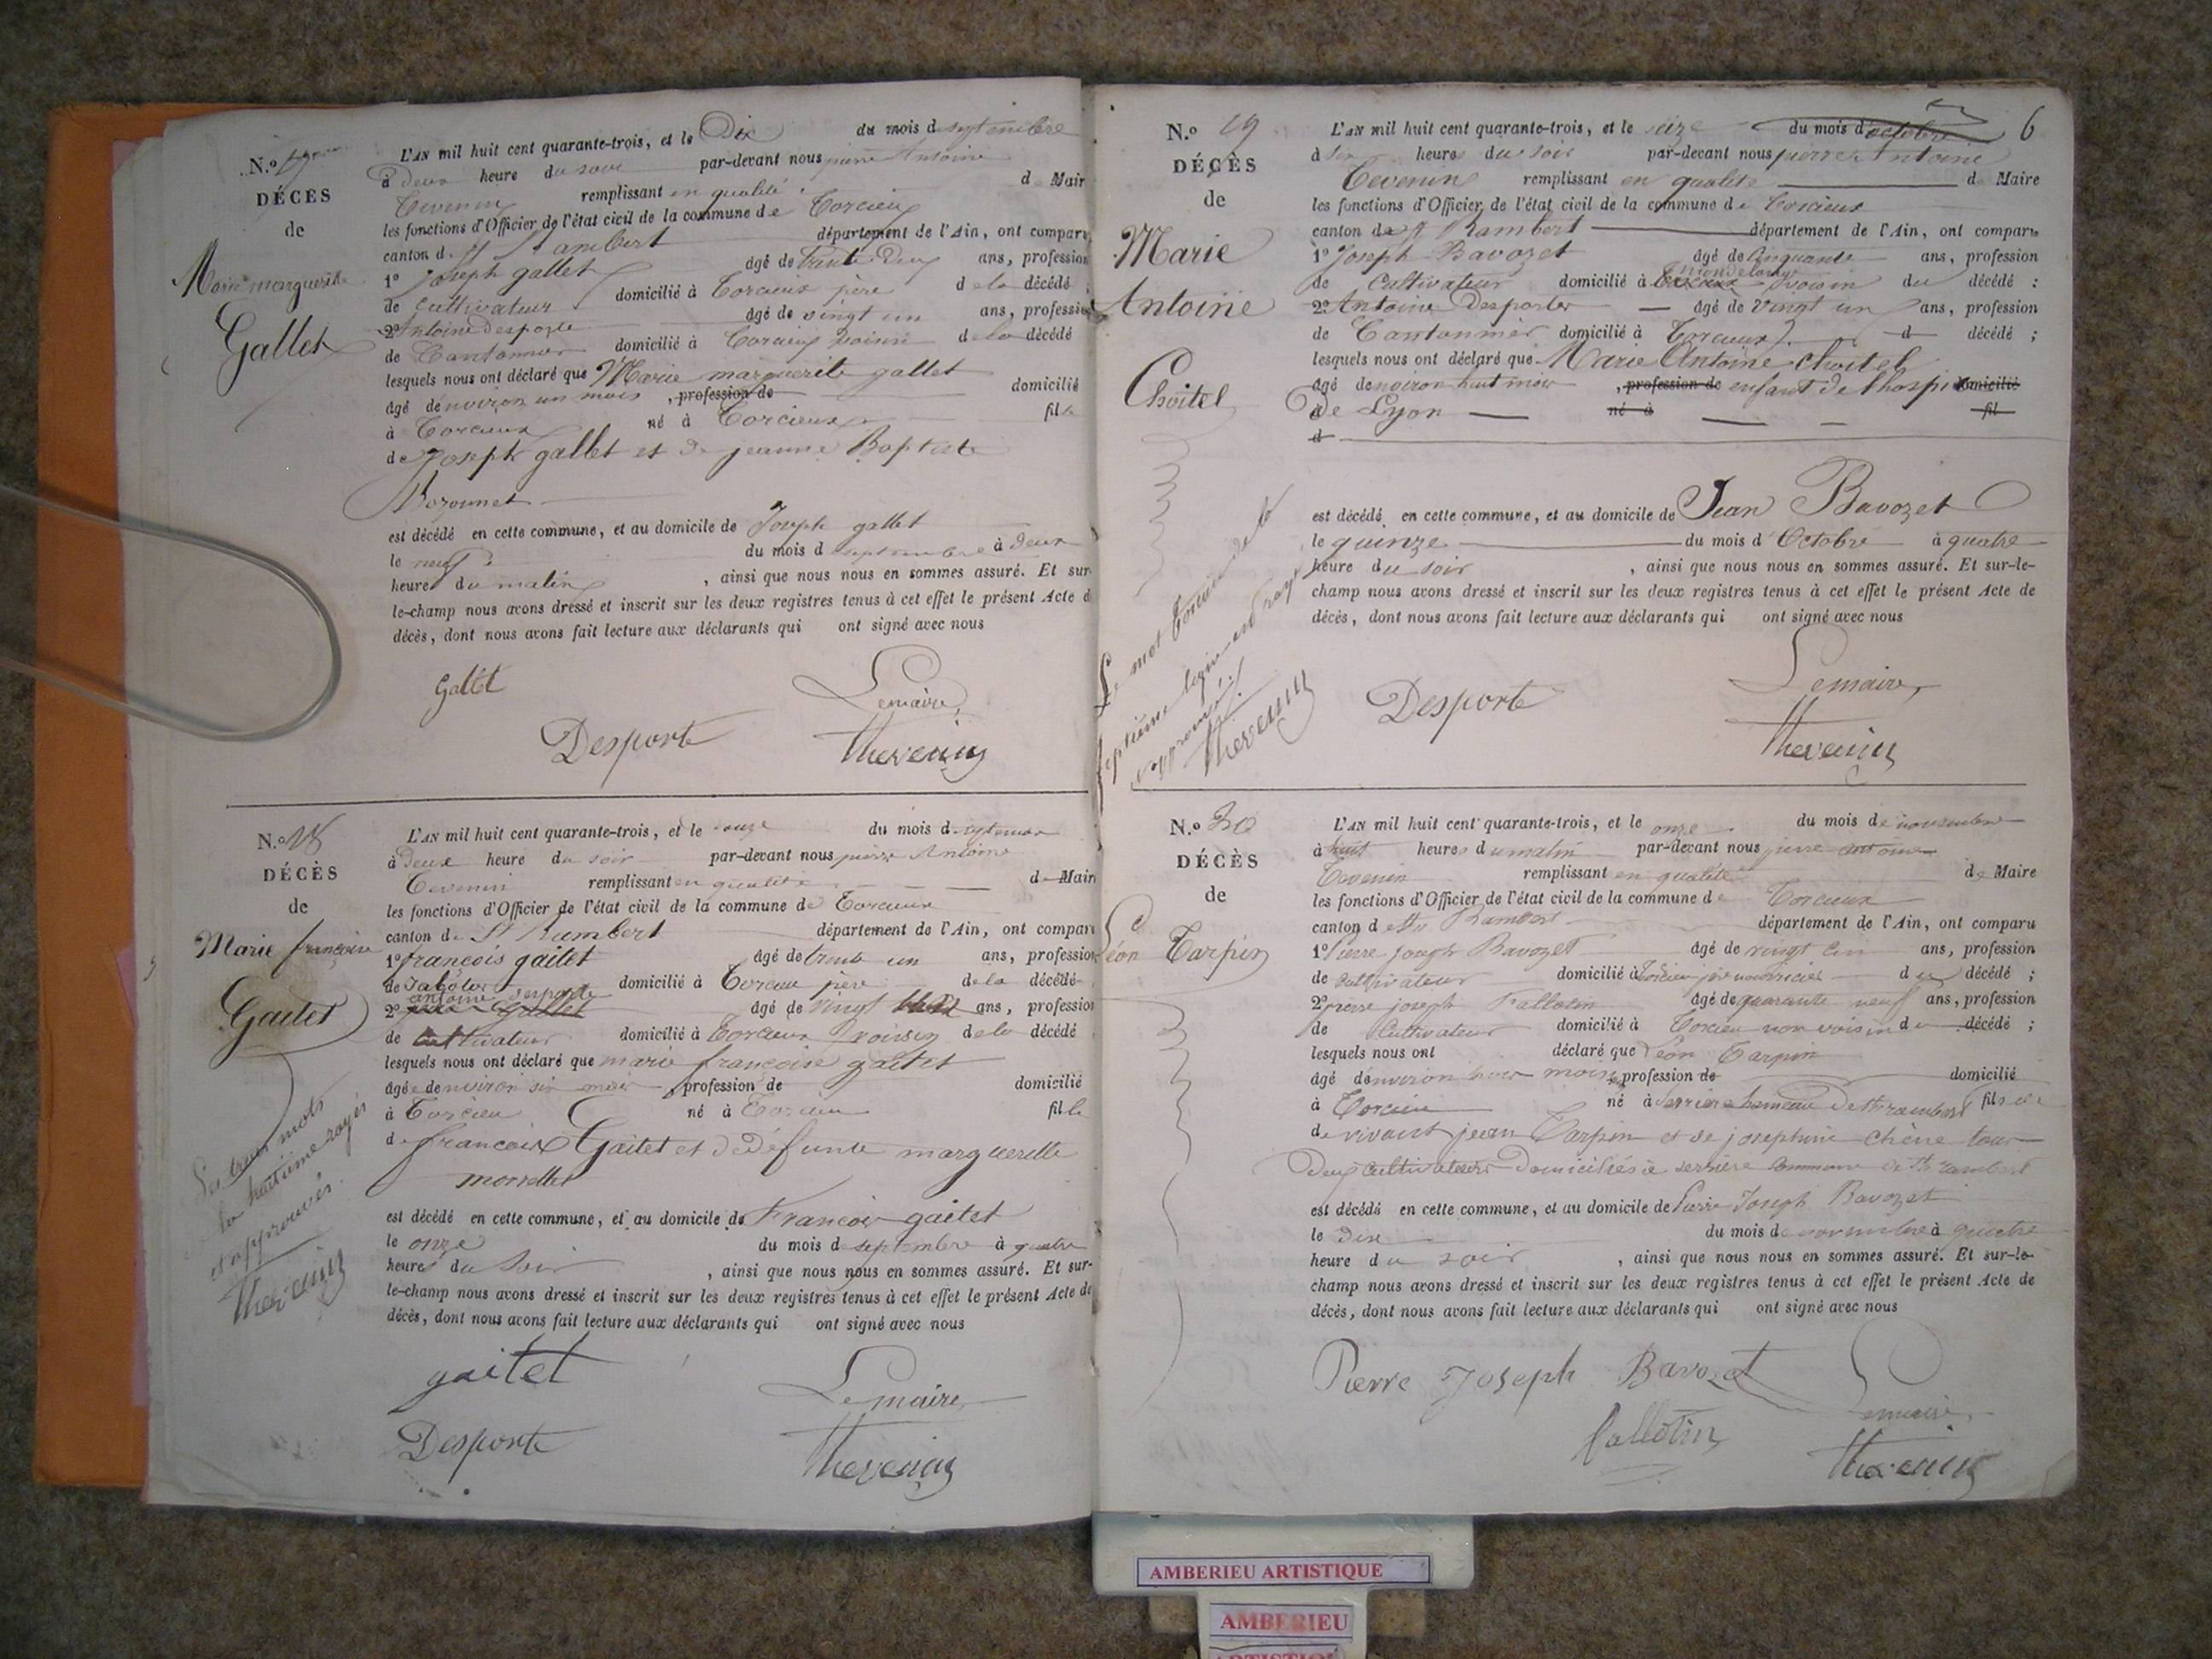 N.o 17
DÉCÈS
de
Marie marguerite
Gallet
L'AN mil huit cent quarante-trois, et le Dix du mois de septembre
à deux heure du soir par-devant nous pierre Antoine
Tevenin remplissant en qualité de Mair
les fonctions d'Officier de l'état civil de la commune de Torcieu
canton de St Rambert département de l'Ain, ont comparu
1o Joseph gallet âgé de trente Deux ans, profession
de cultivateur domicilié à Torcieux père de la décédé ;
2o Antoine desporte âgé de vingt un ans, profession
de Cantonnier domicilié à Torcieux voisin de la décédé
lesquels nous ont déclaré que Marie marguerite gallet
âgé d'environ un mois , profession de domicilié
à Torcieux né à Torcieux fille
de Joseph gallet et de jeanne Baptiste
Bozonnet
est décédé en cette commune, et au domicile de Joseph gallet
le neuf du mois de septembre à deux
heures du matin , ainsi que nous nous en sommes assuré. Et sur-
le-champ nous avons dressé et inscrit sur les deux registres tenus à cet effet le présent Acte de
décès, dont nous avons fait lecture aux déclarants qui ont signé avec nous
Gallet
Le maire,
Desporte
thevenin
N.o 18
DÉCÈS
de
Marie françoise
Gaitet
L'AN mil huit cent quarante-trois, et le onze du mois de septembre
à deux heure du soir par-devant nous pierre Antoine
Tevenin remplissant en qualité de Mair
les fonctions d'Officier de l'état civil de la commune de Torcieux
canton de St Rambert département de l'Ain, ont comparu
1o françois gaitet âgé de trente un ans, profession
de Sabotier domicilié à Torcieu père de la décédé
antoine desporte
2o Gallet âgé de vingt ans, profession
de cultivateur domicilié à Torcieux voisin de la décédé
lesquels nous ont déclaré que marie françoise gaitet
âgée d'environ six mois , profession de domicilié
à Torcieu né à Torcieu fille
de françois Gaitet et de défunte marguerette
morrellet
est décédé en cette commune, et au domicile de François gaitet
le onze du mois de septembre à quatre
heures du soir , ainsi que nous nous en sommes assuré. Et sur-
le-champ nous avons dressé et inscrit sur les deux registres tenus à cet effet le présent Acte de
décès, dont nous avons fait lecture aux déclarants qui ont signé avec nous
Les mots
huitième rayés
et approuvés.
thevenin
gaitet
Le maire,
Desporte
thevenin
6
N.o 19
DÉCÈS
de
Marie
Antoine
Choitel
L'AN mil huit cent quarante-trois, et le seize du mois d'octobre
à six heures du soir par-devant nous pierre Antoine
Tevenin remplissant en qualité de Maire
les fonctions d'Officier de l'état civil de la commune de Torcieux
canton de St Rambert département de l'Ain, ont comparu
1o Joseph Bavozet âgé de Cinquante ans, profession
de Cultivateur domicilié à Torcieux voisin du décédé :
2o Antoine Desportes âgé de vingt un ans, profession
de Cantonnier domicilié à Torcieux d décédé ;
lesquels nous ont déclaré que Marie Antoine Choitel
âgé d'environ huit mois , profession de enfant de l'hospice domicilié
De Lyon né à fil
d
est décédé en cette commune, et au domicile de Jean Bavozet
le quinze du mois d'Octobre à quatre
heure du soir , ainsi que nous nous en sommes assuré. Et sur-le-
champ nous avons dressé et inscrit sur les deux registres tenus à cet effet le présent Acte de
décès, dont nous avons fait lecture aux déclarants qui ont signé avec nous
Le mot Torcieux de la
septième ligne rayé
approuvé.
thevenin
Desporte
Le maire,
thevenin
N.o 20
DÉCÈS
de
Léon Tarpin
L'AN mil huit cent quarante-trois, et le onze du mois de novembre
à huit heures du matin par-devant nous pierre antoine
Tevenin remplissant en qualité de Maire
les fonctions d'Officier de l'état civil de la commune de Torcieux
canton de St Rambert département de l'Ain, ont comparu
1o Pierre joseph Bavozet âgé de vingt cin ans, profession
de cultivateur domicilié à Torcieu père nourricier du décédé ;
2o pierre joseph Fallotin âgé de quarante neuf ans, profession
de Cultivateur domicilié à Torcieu non voisin du décédé ;
lesquels nous ont déclaré que Léon Tarpin
âgé d'environ mois , profession de domicilié
à Torcieu né à Serriere hameau de St rambert fils
de vivant jean Tarpin et de josephine chêne tous
Deux cultivateurs Domiciliés à serriere Commune de St rambert
est décédé en cette commune, et au domicile de Pierre Joseph Bavozet
le Dix du mois de novembre à quatre
heure du soir , ainsi que nous nous en sommes assuré. Et sur-le-
champ nous avons dressé et inscrit sur les deux registres tenus à cet effet le présent Acte de
décès, dont nous avons fait lecture aux déclarants qui ont signé avec nous
Pierre Joseph Bavozet
Le maire,
fallotin
thevenin
AMBERIEU ARTISTIQUE
AMBERIEU
ARTISTIQUE